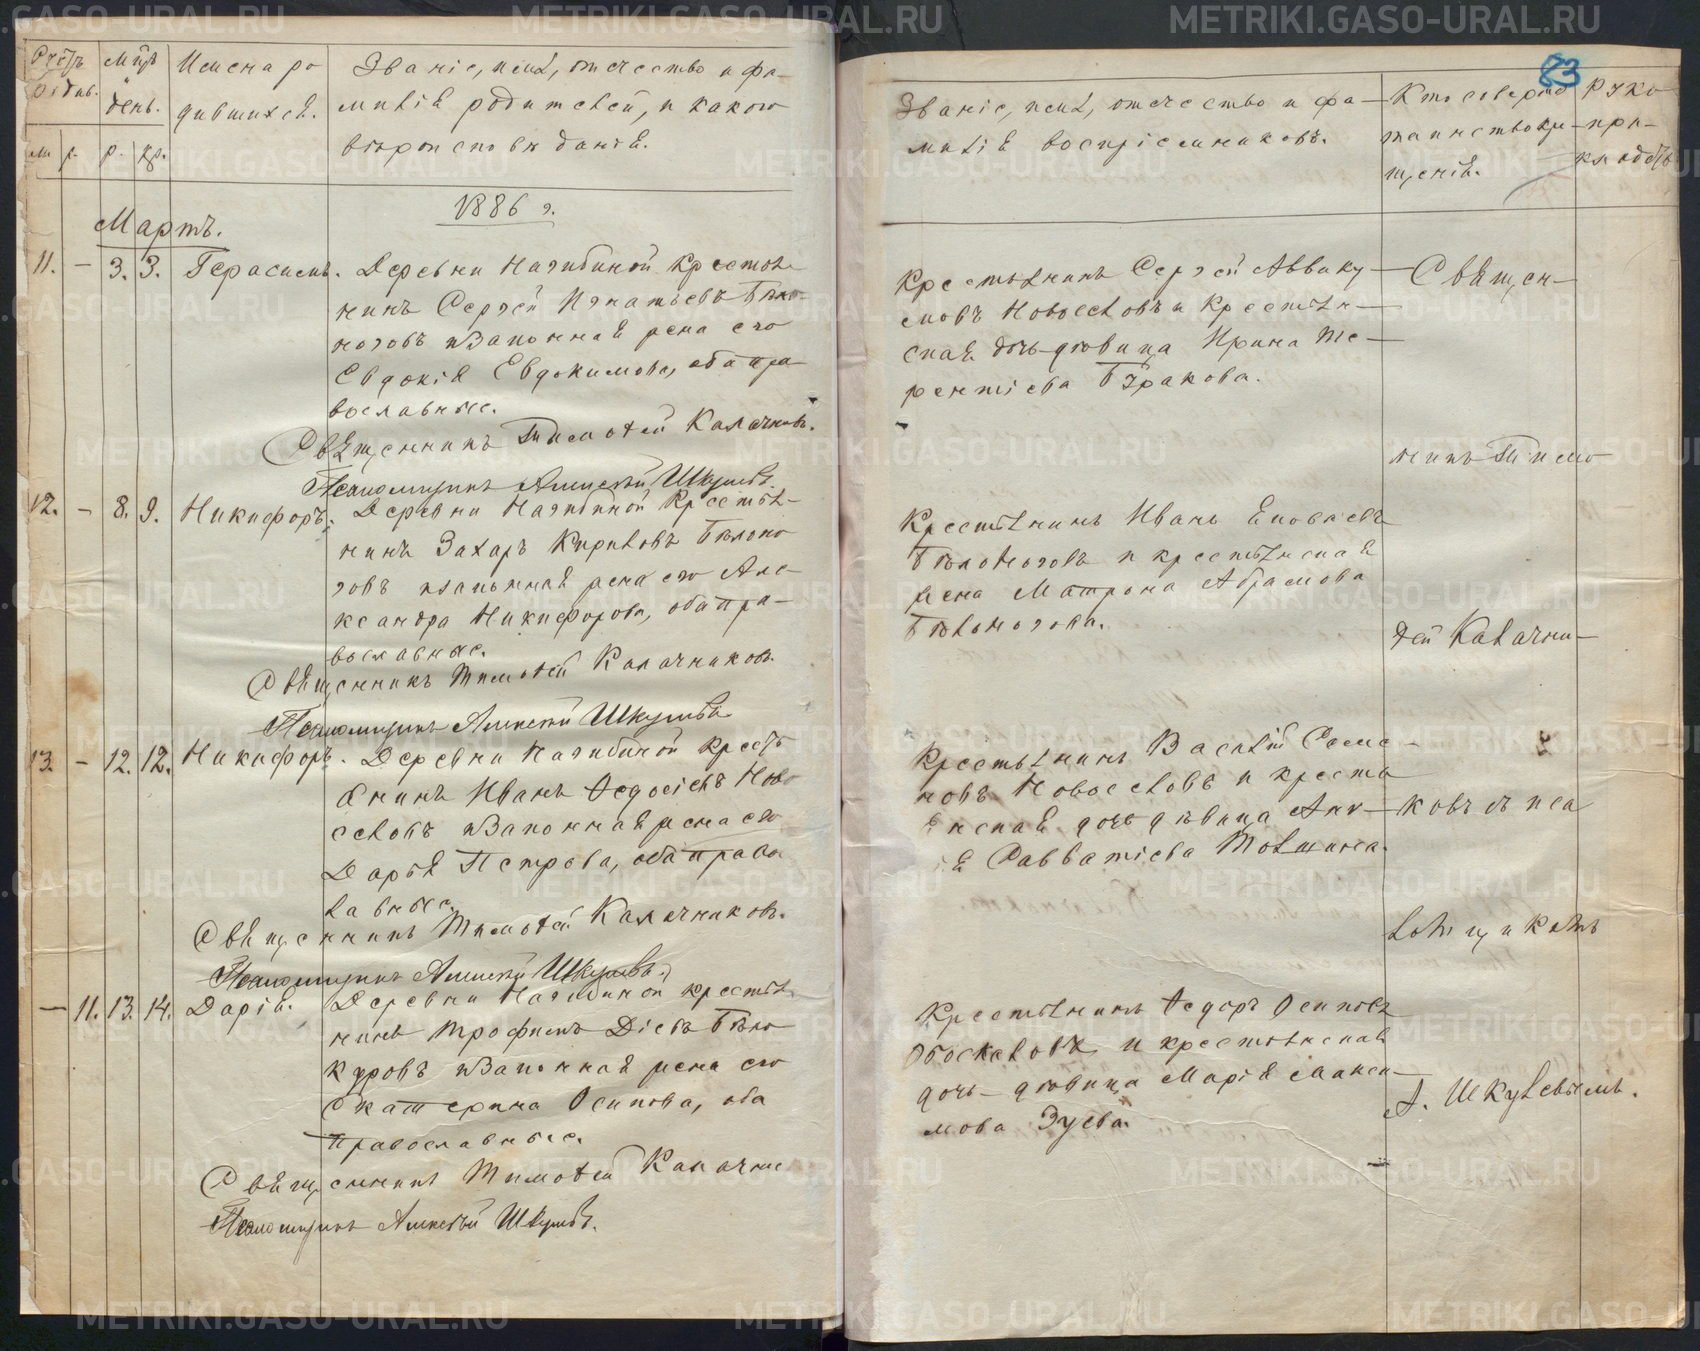 Счетъ
родив.
Мѣцъ
и
день.
Имена ро
дившихся.
Званіе, имя, отечество и фа-
милія родителей, и какого
вѣроисповѣданія.
м. р. р. кр.
1886 г.
Мартъ.
11. - 3. 3. Герасимъ. Деревни Нагибиной крестья
нинъ Сергѣй Игнатьевъ Бѣло-
ноговъ и законная жена его
Евдокія Евдокимова, оба пра
вославные.
Священникъ Тимоѳей Калачниковъ.
Псаломщикъ Алексѣй Шкулевъ.
12. - 8. 9. Никифоръ. Деревни Нагибиной крестья-
нинъ Захаръ Кириловъ Бѣлоно
говъ и законная жена его Але-
ксандра Никифорова, оба пра-
вославные.
Священникъ Тимоѳей Калачниковъ.
Псаломщикъ Алексѣй Шкулевъ
13. - 12. 12. Никифоръ. Деревни Нагибиной крестья
янинъ Иванъ Ѳедосіевъ Ново
селовъ и законная жена его
Дарья Петрова, оба правос
лавные.
Священникъ Тимоѳей Калачниковъ.
Псаломщикъ Алексѣй Шкулевъ.
- 11. 13. 14. Дарія. Деревни Нагибиной крестья
нинъ Трофимъ Діевъ Бѣло
куровъ и законная жена его
Екатерина Осипова, оба
православные.
Священникъ Тимоѳей Калачник
Псаломщикъ Алексѣй Шкулевъ.
83
Званіе, имя, отечество и фа-
милія воспріемниковъ.
Кто соверш
таинство кре-
щенія.
Руко
при-
кладст
Крестьянинъ Сергѣй Авваку-
мовъ Новоселовъ и крестьян-
ская дочь-дѣвица Ирина Те-
рентіева Буракова.
Крестьянинъ Иванъ
Бѣлоноговъ и крестьянская
жена Матрона Абрамова
Бѣлоногова.
Крестьянинъ Василій Семе-
новъ Новоселовъ и крестья
янская дочь дѣвица
Савватіева
Крестьянинъ Ѳедоръ Осиповъ
и крестьянская
дочь-дѣвица Марія Макси-
мова Зуева.
Священ-
никъ Тимо
ѳей Калачни-
ковъ съ пса
ломщикомъ
А. Шкулевымъ.
METRIKI.GASO-URAL.RU